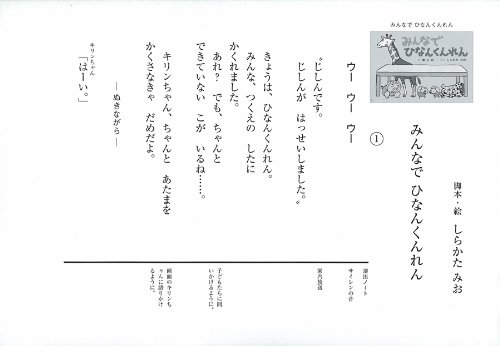 みんなで ひなんくんれん
みんなで
ひなんくんれん
脚本・絵 しらかた みお
みんなで ひなんくんれん
①
ウー ウー ウー
“じしんです。
じしんが はっせいしました。”
きょうは、ひなんくんれん。
みんな、つくえの したに
かくれました。
あれ？ でも、ちゃんと
できていない こが いるね……。
キリンちゃん、ちゃんと あたまを
かくさなきゃ だめだよ。
―ぬきながら―
キリンちゃん
「はーい。」
演出ノート
サイレンの音
園内放送
子どもたちに問
いかけるように。
画面のキリンち
ゃんに語りかけ
るように。